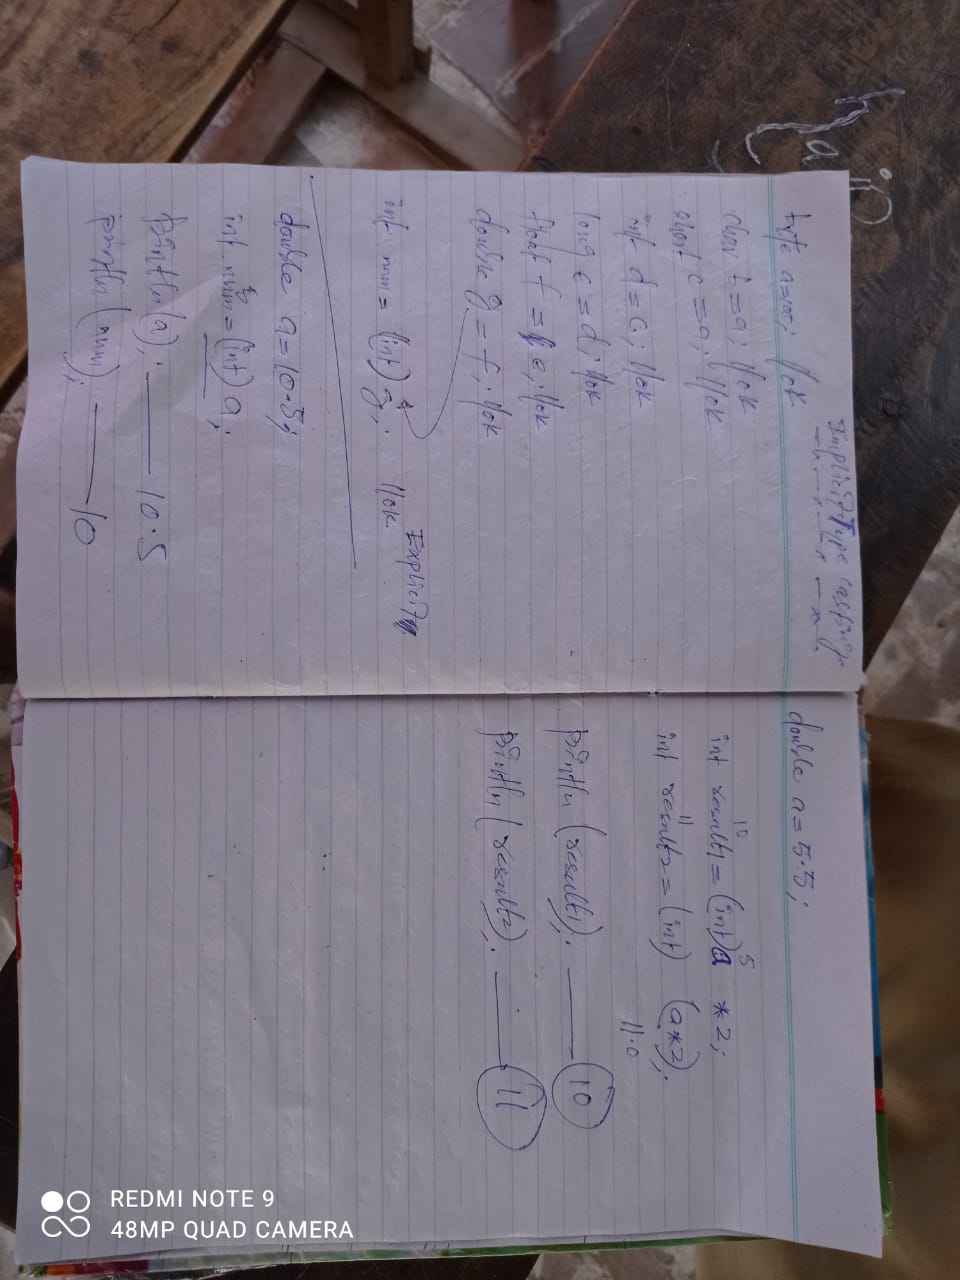 haip
Implicit Type casting
byte a=100; //ok
char b=a; //ok
short c=a; //ok
int d=c; //ok
long e=d; //ok
float f= e; //ok
double g=f; //ok
int num= (int) g; //ok Explicit
double a=10.5;
int num=(int) a;
println(a); 10.5
println(num); 10
double a=5.5;
10 5
int result1=(int)a *2;
11
int result2=(int) (a*2);
11.0
println(result1); 10
println(result2); 11
REDMI NOTE 9
48MP QUAD CAMERA